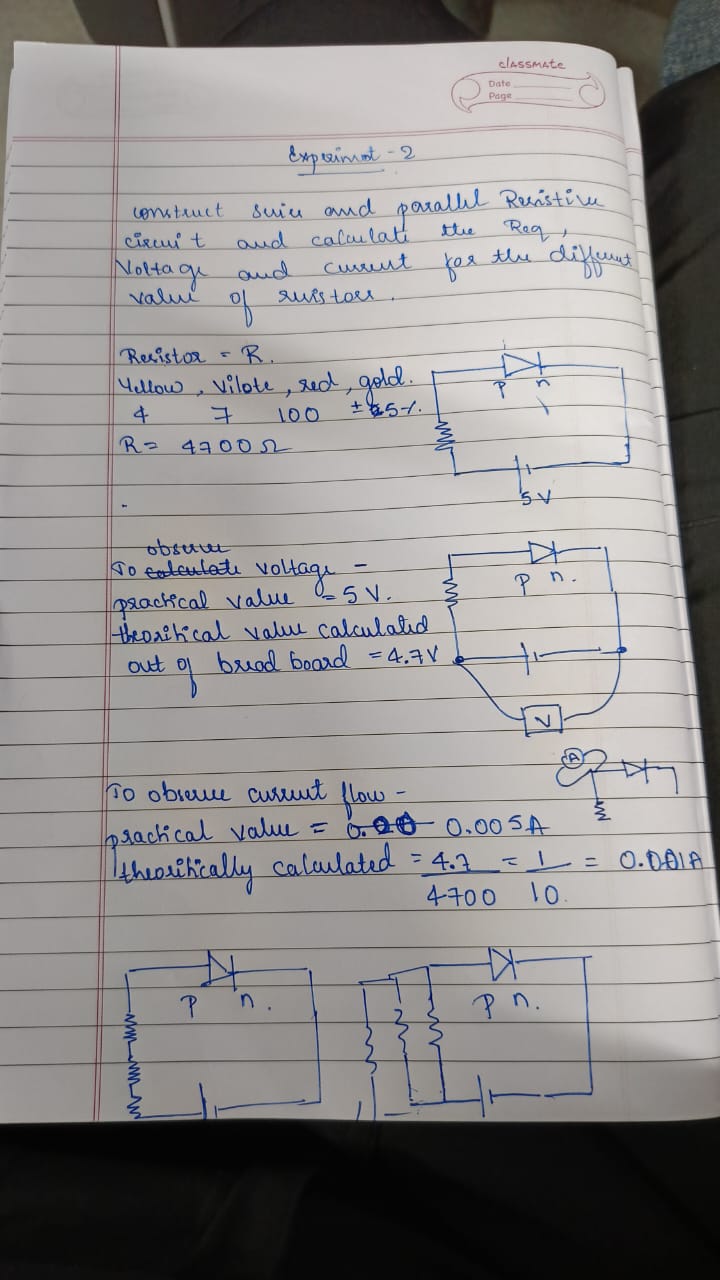 classmate
Date
Page
Experimnt - 2
construct serier and parallel Resistive
circuit and calculate the Req,
Voltage and current for the different
value of resistors.
Resistor = R.
Yellow, Vilote, red, gold.
4 7 100 ± 5%.
R = 4700Ω
P n
5V
observe
To calculate voltage -
practical value = 5V.
P n.
theoritical value calculated
out of bread board = 4.7V
V
A
To observe current flow -
practical value = 0.00 0.005A
theoritically calculated = 4.7 / 4700 = 1 / 10. = 0.001A
P n.
P n.